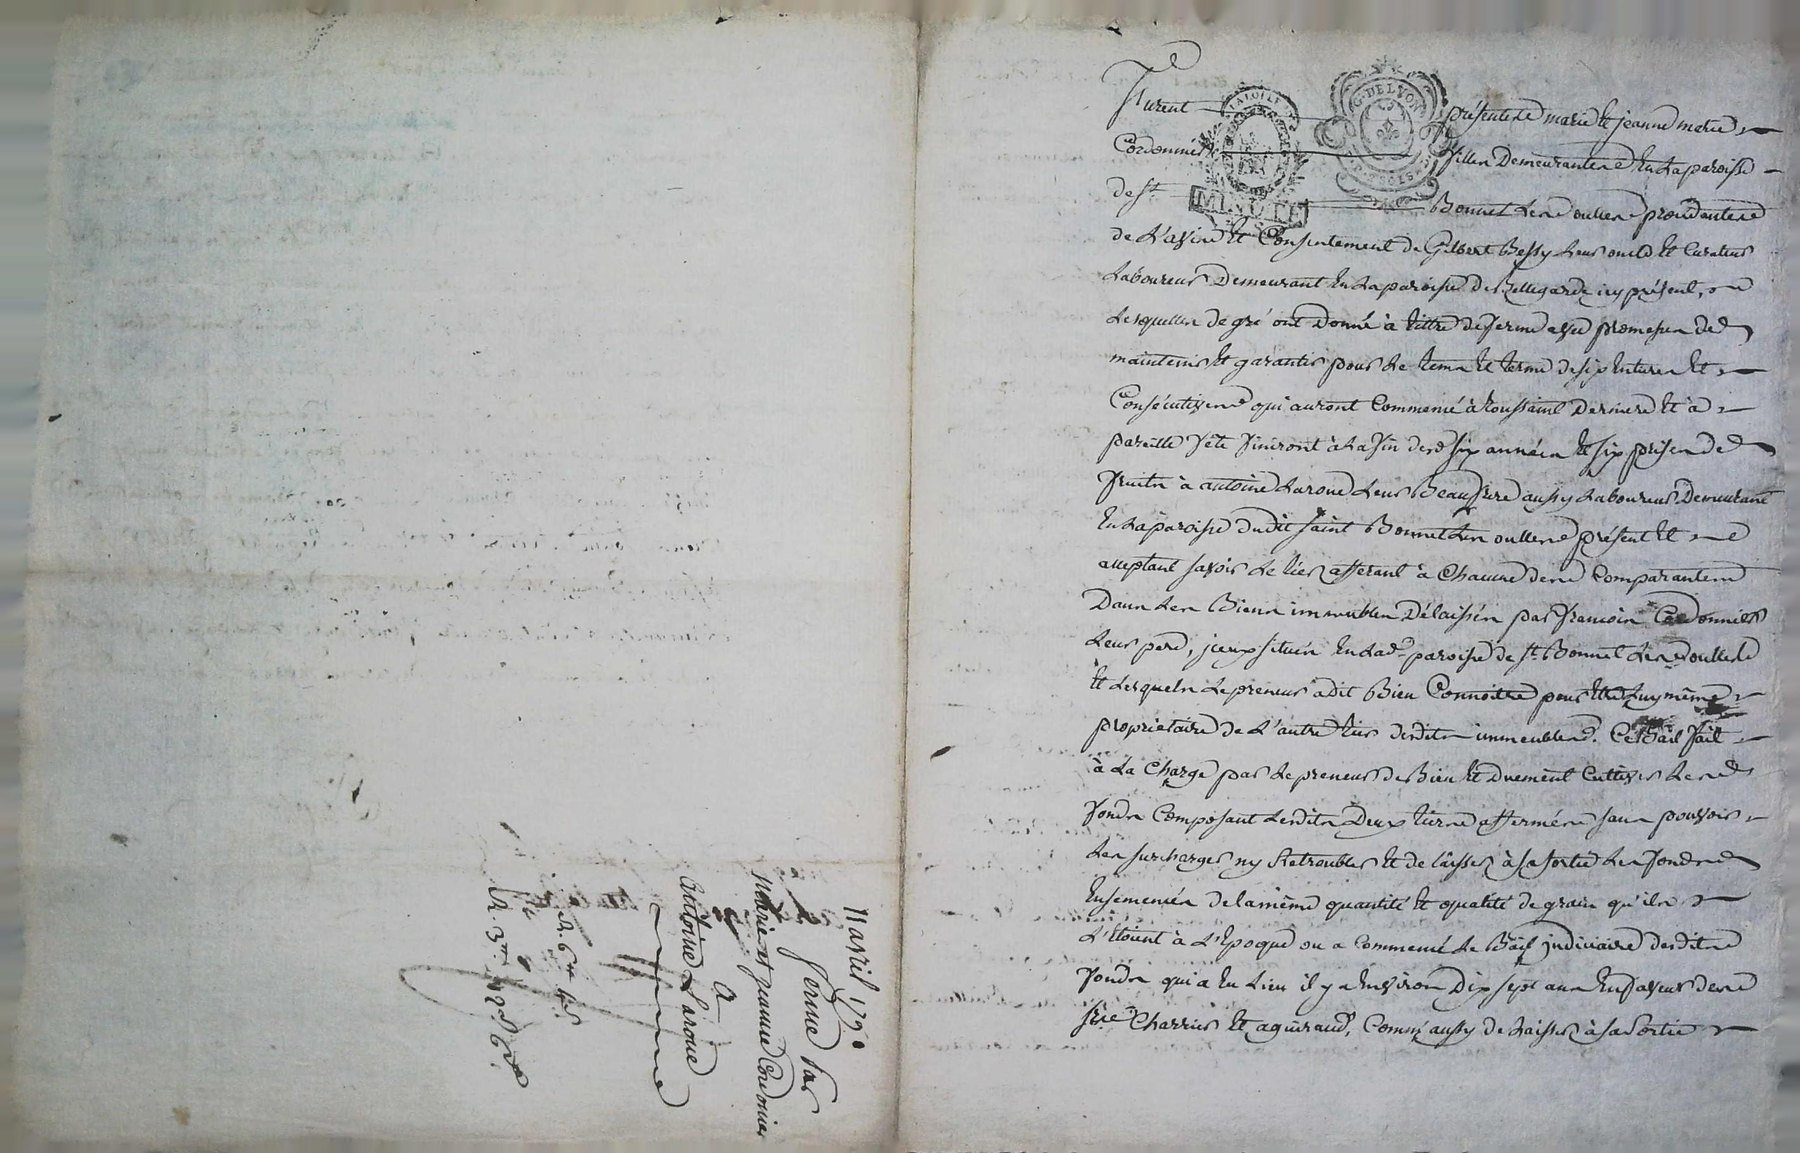 11 avril 1790
ferme par
marie et jeanne Cordonier
a
antoine Laroue
R. 3
G. DE LYON
MINUTE
furent présentes marie et jeanne marie
Cordonnier filles Demeurantes En la paroisse
de St Bonnet les oulles procédantes
de L'avis et Consentement de Gilbert Bessy Leur oncle et Curateur
Laboureur Demeurant En La paroisse de Bellegarde icy présent,
Lesquelles de gré ont Donné à tittre de ferme avec promesses de
maintenir et garantir pour Le tems et terme de six Entieres et
Consécutives qui auront Commencé à toussaint Derniere et à
pareille fête finiront à La fin desd six années et six prises de
fruits à antoine Laroue Leur Beaufrere aussy Laboureur Demeurant
En La paroisse dudit saint Bonnet Les oulles présent et
acceptant savoir Le tiers afferant à Chacune des Comparantes
Dans Les Biens immeubles Délaissés par françois Cordonnier
Leur pere, iceux situés En Lad. paroisse de St Bonnet Les oulles
Et Lesquels Le preneur a dit Bien Connoitre pour Etre Luy même
proprietaire de L'autre tiers desdits immeubles. Ce Bail fait
à La Charge par Le preneur de Bien Et Duement Cultiver Les
fonds Composant Lesdits Deux tiers affermés sans pouvoir
Les surcharger ny Retroubler Et de laisser à sa sortie Les fonds
Ensemencés de la même quantité Et qualité de grain qu'ils
L'Etoient à L'Epoque ou a Commencé Le Bail judiciaire desdits
fonds qui a Eu Lieu il y a Environ Dix sept ans En faveur des
Srs Charrier Et aguiraud, Comme aussy de Laisser à sa sortie